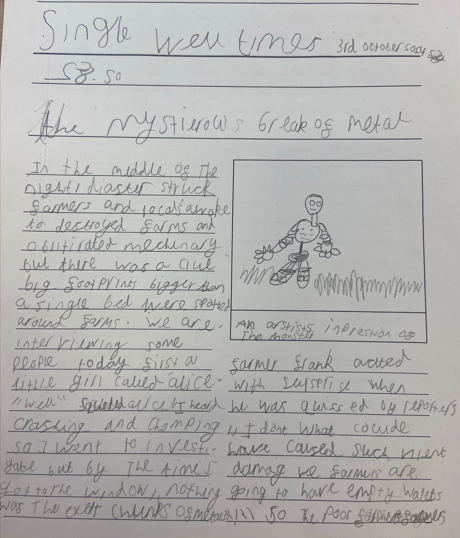 Single well times 3rd october
£3.50
the mystierows break of metal
In the middle of the
night diaster struck
farmers and locals awoke
to destroyed farms and
oblitirated mechinary
but there was a clue
big footprints bigger than
a single bed were spotted
around farms. we are
interviewing some
people today first a
little girl called alice.
"well" alice "I heard
crashing and chomping
so I went to investi-
gate but by the time I
got to the window, nothing
was There exept chunks of metal!!!
An artists impresion of
The monster
farmer frank
with surprise when
he was quissed by reporters
"I dont what
have caused such
damage we farmers are
going to have empty walets
So the poor